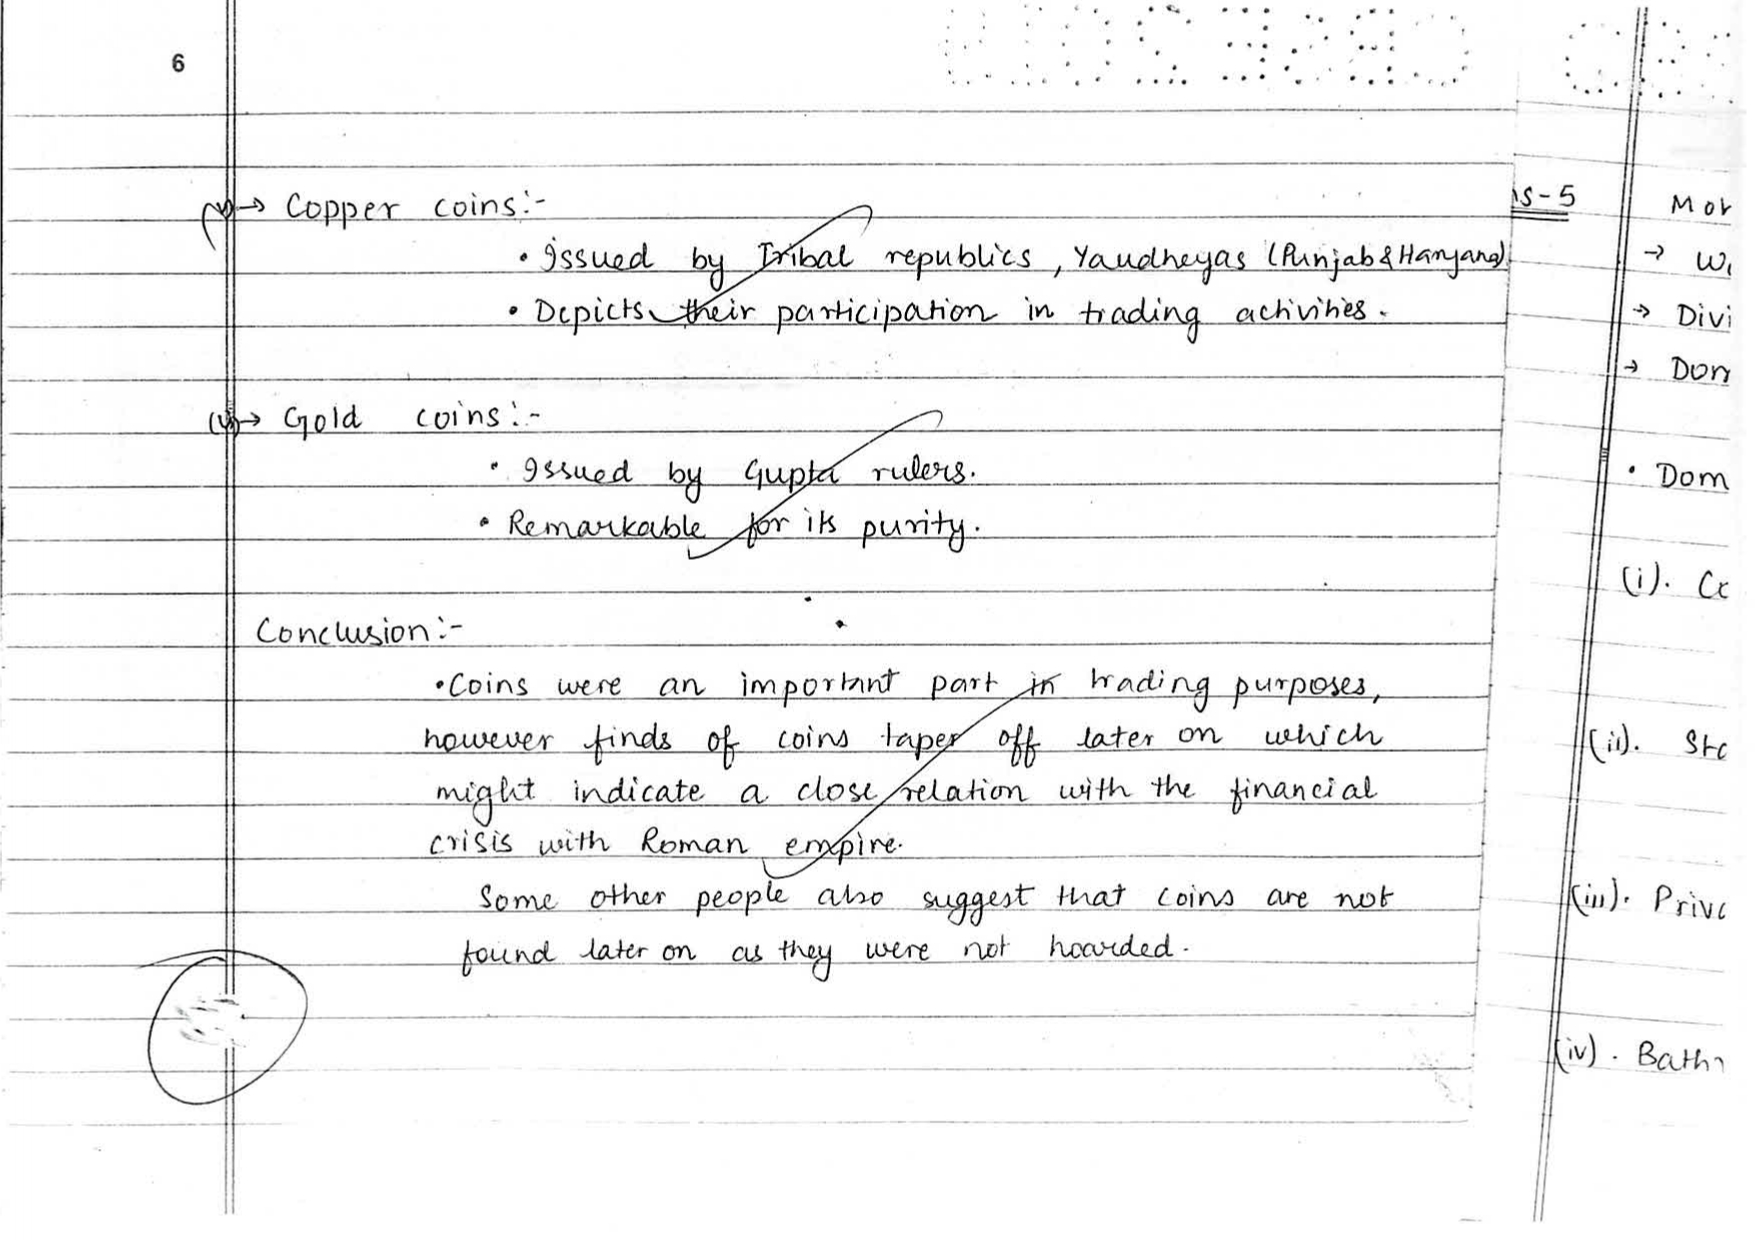 6
CBSE 2019
→ Copper coins:-
• Issued by Tribal republics, Yaudheyas (Punjab & Haryana)
• Depicts their participation in trading activities.
(v) → Gold coins:-
• Issued by Gupta rulers.
• Remarkable for its purity.
Conclusion:-
• Coins were an important part in trading purposes,
however finds of coins taper off later on which
might indicate a close relation with the financial
crisis with Roman empire.
Some other people also suggest that coins are not
found later on as they were not hoarded.
ns-5
Mor
→ W
→ Divi
→ Dom
• Dom
(i). Cc
(ii). Stc
(iii). Priva
(iv). Bath